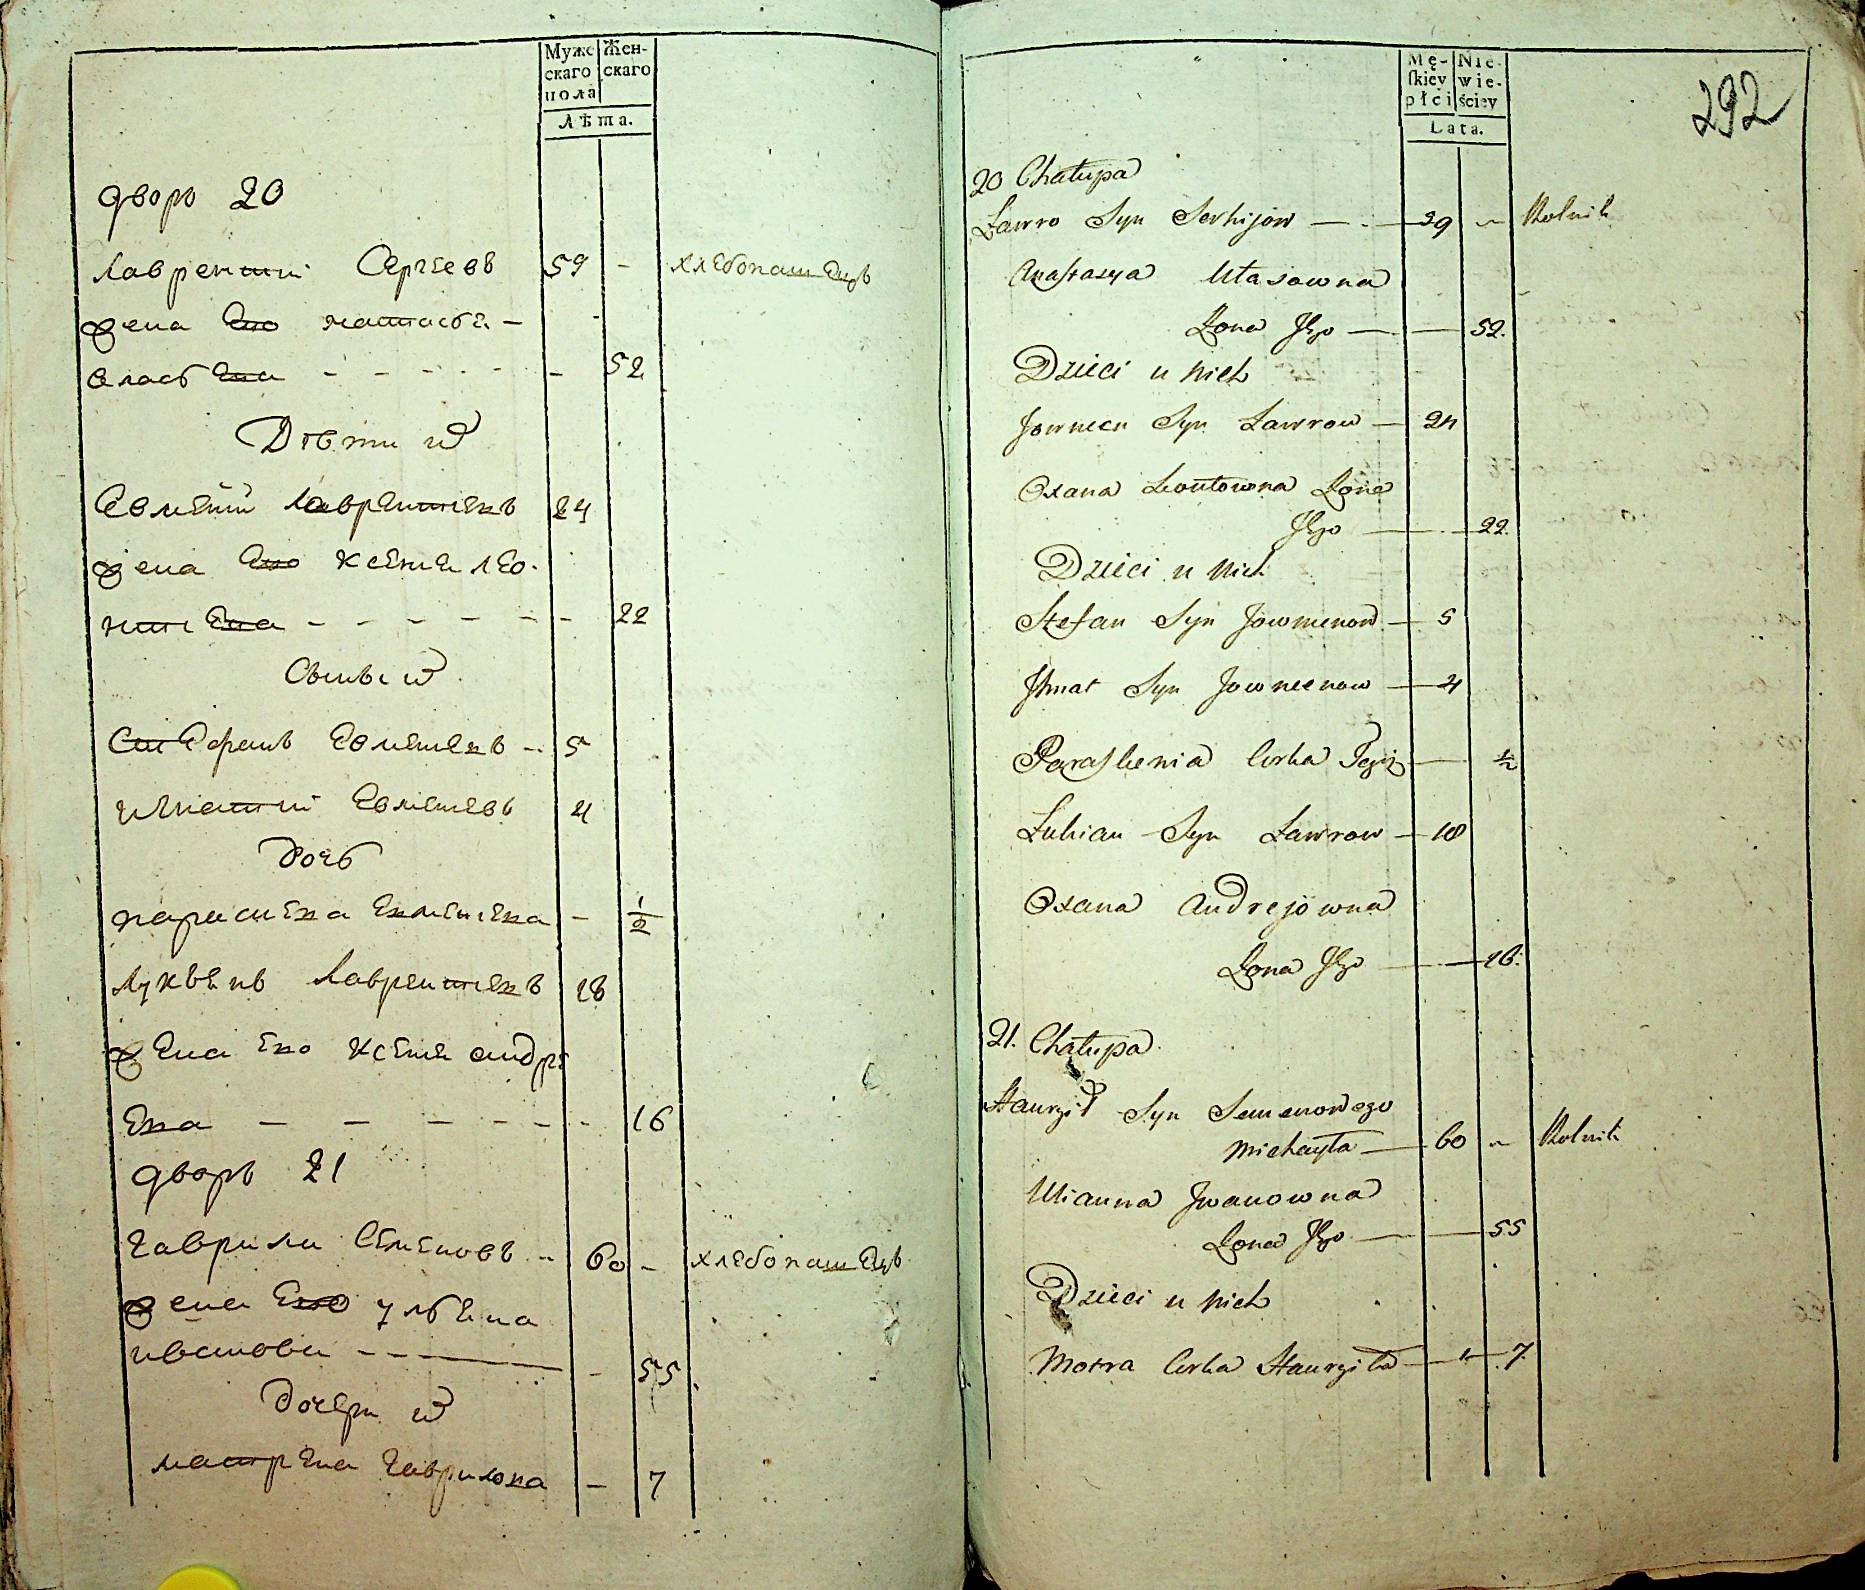 Муже Жен-
скаго скаго
пола
Лѣта.
дворъ 20
Лаврентий Сергеевъ 59 - хлебопашецъ
жена Его настасья -
власьева - - - - - - 52
Дѣти их
Евмений Лаврентиевъ 24
жена Его ксения лео-
нтиева - - - - - - 22
Сыновья их
Стефанъ Евмениевъ - 5
игнатий Евмениевъ 4
Дочь
параскева Евмениева - 1/2
Лукьянъ Лаврентиевъ 18
жена Его ксения андре
Ева - - - - - - 16
дворъ 21
гаврила Семеновъ - 60 - хлебопашецъ
жена Его ульяна
иванова - - - - 55
Дочери их
матрена гаврилова - 7
292
Mę- Nie-
skiey wie-
płci ściey
Lata.
20 Chałupa
Ławro Syn Serhijow — 59 „ Rolnik
Anastazya Ułasowna
Żona Jego — — 52.
Dzieci u Nich
Jowmen Syn Ławrow — 24
Oxana Leontowna Żona
Jego — — 22.
Dzieci u Nich
Stefan Syn Jowmenow — 5
Ihnat Syn Jowmenow — 4
Paraskewia Corka Tegoż — 1/2
Łukian Syn Ławrow — 18
Oxana Andrejowna
Żona Jego — — 16.
21. Chałupa
Hawryło Syn Semenowego
Michayła — 60 „ Rolnik
Ulianna Iwanowna
Żona Jego — — 55
Dzieci u Nich
Motra Corka Hawryiła — „ — 7.